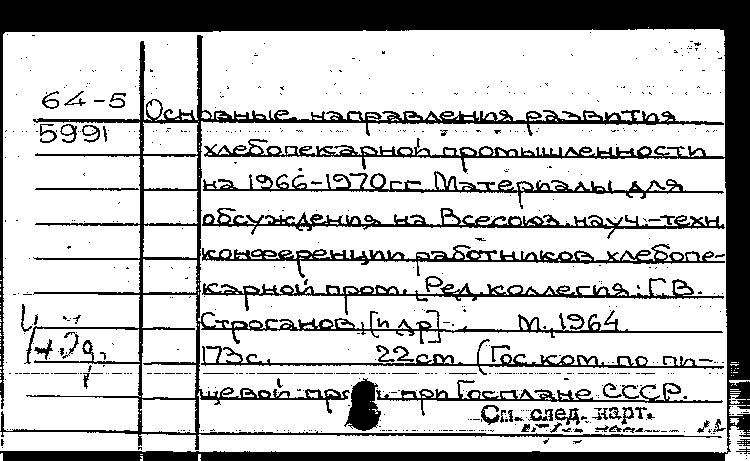 64-5
5991
Основные направления развития
хлебопекарной промышленности
на 1966-1970гг. Материалы для
обсуждения на Всесоюз. науч.-техн.
конференции работников хлебопе-
карной пром. [Ред. коллегия: Г.В.
Строганов, [и др] М., 1964.
173с. 22см. (Гос. ком. по пи-
щевой пром. при Госплане СССР.
См. след. карт.